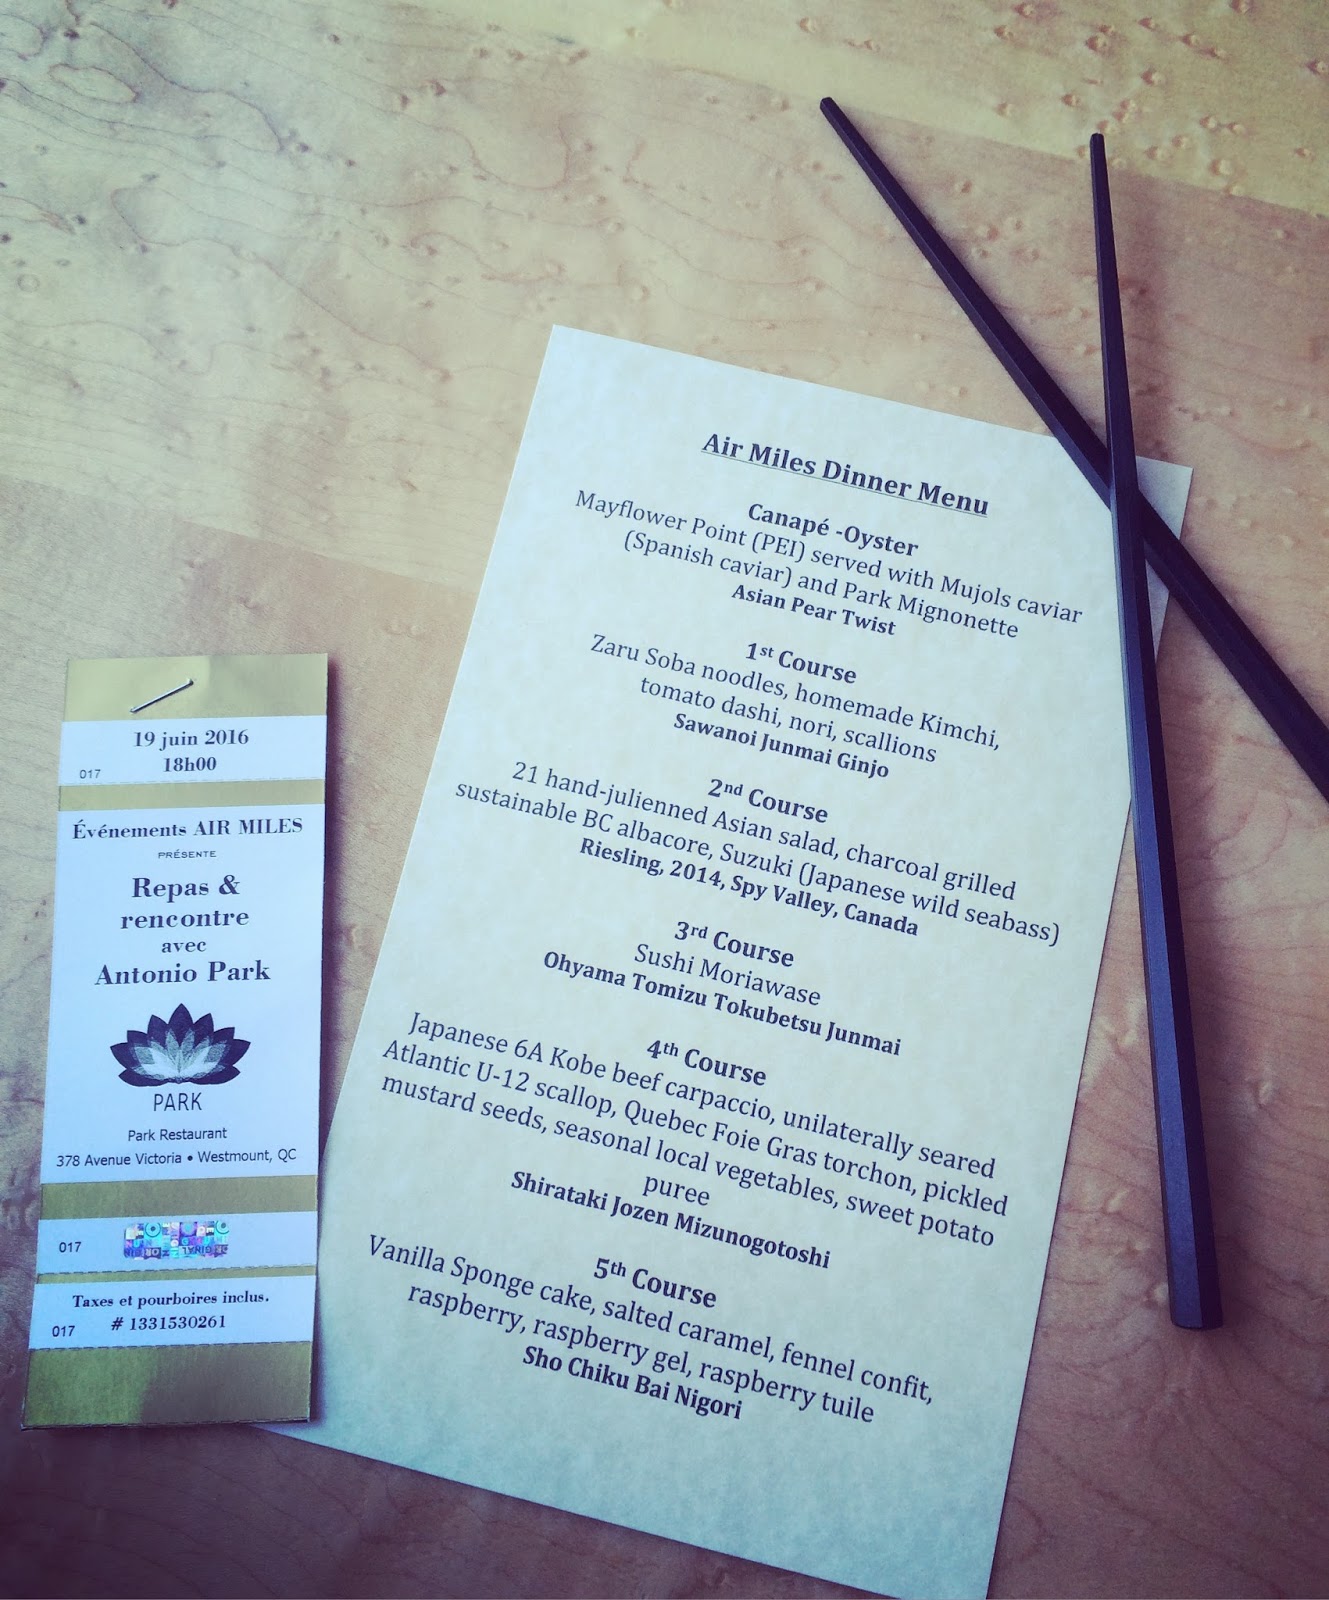 19 juin 2016
18h00
017
Événements AIR MILES
PRÉSENTE
Repas &
rencontre
avec
Antonio Park
PARK
Park Restaurant
378 Avenue Victoria • Westmount, QC
017
Taxes et pourboires inclus.
# 1331530261
017
Air Miles Dinner Menu
Canapé -Oyster
Mayflower Point (PEI) served with Mujols caviar
(Spanish caviar) and Park Mignonette
Asian Pear Twist
1st Course
Zaru Soba noodles, homemade Kimchi,
tomato dashi, nori, scallions
Sawanoi Junmai Ginjo
2nd Course
21 hand-julienned Asian salad, charcoal grilled
sustainable BC albacore, Suzuki (Japanese wild seabass)
Riesling, 2014, Spy Valley, Canada
3rd Course
Sushi Moriawase
Ohyama Tomizu Tokubetsu Junmai
4th Course
Japanese 6A Kobe beef carpaccio, unilaterally seared
Atlantic U-12 scallop, Quebec Foie Gras torchon, pickled
mustard seeds, seasonal local vegetables, sweet potato
puree
Shirataki Jozen Mizunogotoshi
5th Course
Vanilla Sponge cake, salted caramel, fennel confit,
raspberry, raspberry gel, raspberry tuile
Sho Chiku Bai Nigori